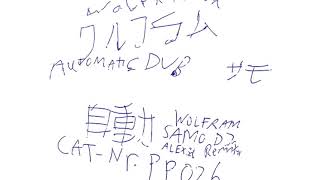 WOLFRAM
ウルフラム
AUTOMATIC DUB サモ
自動 WOLFRAM
SAMO DJ
ALEXIS Remix
CAT-Nr. PP026